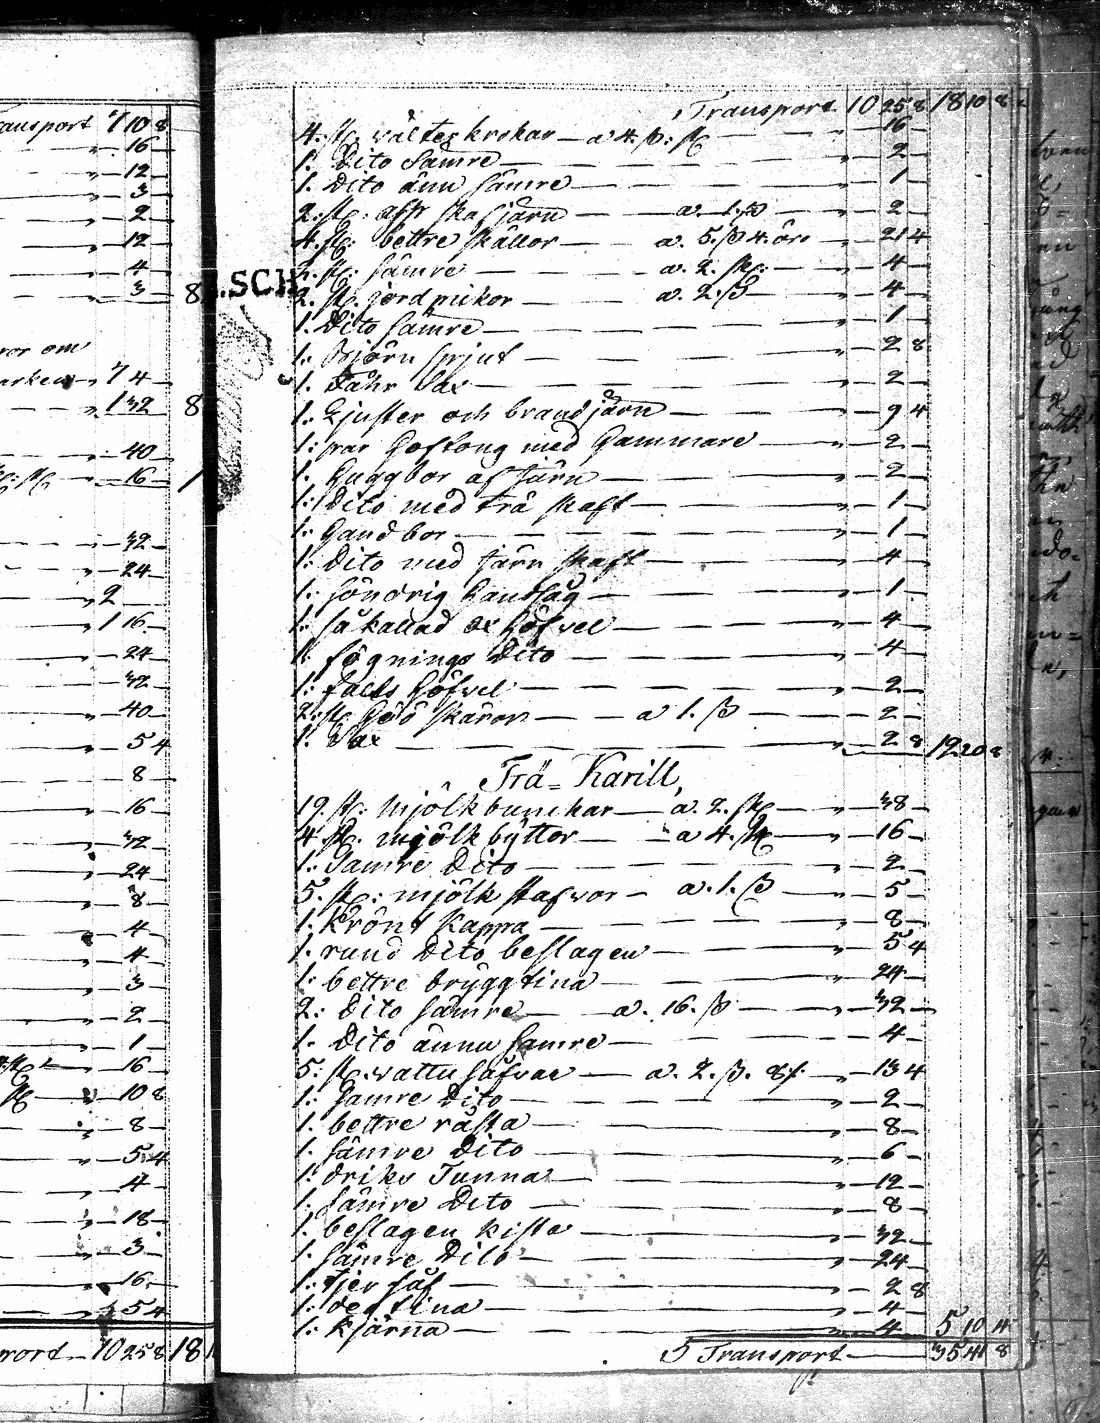 Transport 7 10 8
16
12
3
2
12
4
3 8
ror om
7 4
1 32 8
40
16 1
32
24
2
1 16
24
32
40
5 4
8
16
32
24
8
4
4
3
2
1
16
10 8
8
5 4
4
18
3
16
5 4
10 25 8 18
.SCH
Transport 10 25 8 18 10 8
4. st. krokar a 4. ß: st 16
1. Dito Sämre 2
1. Dito ännu sämre 1
2. st. skafjärn a. 1. ß 2
4. st: bettre skällor a. 5. ß 4. öre 21 4
2. st. sämre a. 2. sk: 4
2. st. jord pikor a. 2. ß 4
1. Dito sämre 1
1. Björn spjut 2 8
1. Fåhr Sax 2
1. Ljuster och brandjärn 9 4
1. par Hoftong med Hammare 2
1. Huggbor af järn 2
1. Dito med trä skaft 1
1. Handbor 1
1. Dito med järn skaft 4
1. söndrig Handsåg 1
1. så kallad ox Höfvel 4
1. fögnings Dito 4
1. fals Höfvel 2
2. st. Höö skäror a 1. ß 2
1. Sax 2 8 12 20 8
Trä-Karill,
19. st: mjölkbunckar a. 2. sk 38
4 st. mjölk byttor a 4. sk 16
1. Sämre Dito 2
5. st: mjölk stafvor a. 1. ß 5
1. Krönt Kappa 8
1. rund Dito beslagen 5 4
1. bettre bryggtina 24
2. Dito sämre a. 16. ß 32
1. Dito ännu sämre 4
5. st. vattu såfvar a. 2. ß. 8 13 4
1. Sämre Dito 2
1. bettre råsta 8
1. sämre Dito 6
1. driks Tunna 12
1. sämre Dito 8
1. beslagen kista 32
1. sämre Dito 24
1. tjer såf 2 8
1. deg tina 4
1. kjärna 4 5 10 4
5 Transport 35 41 8